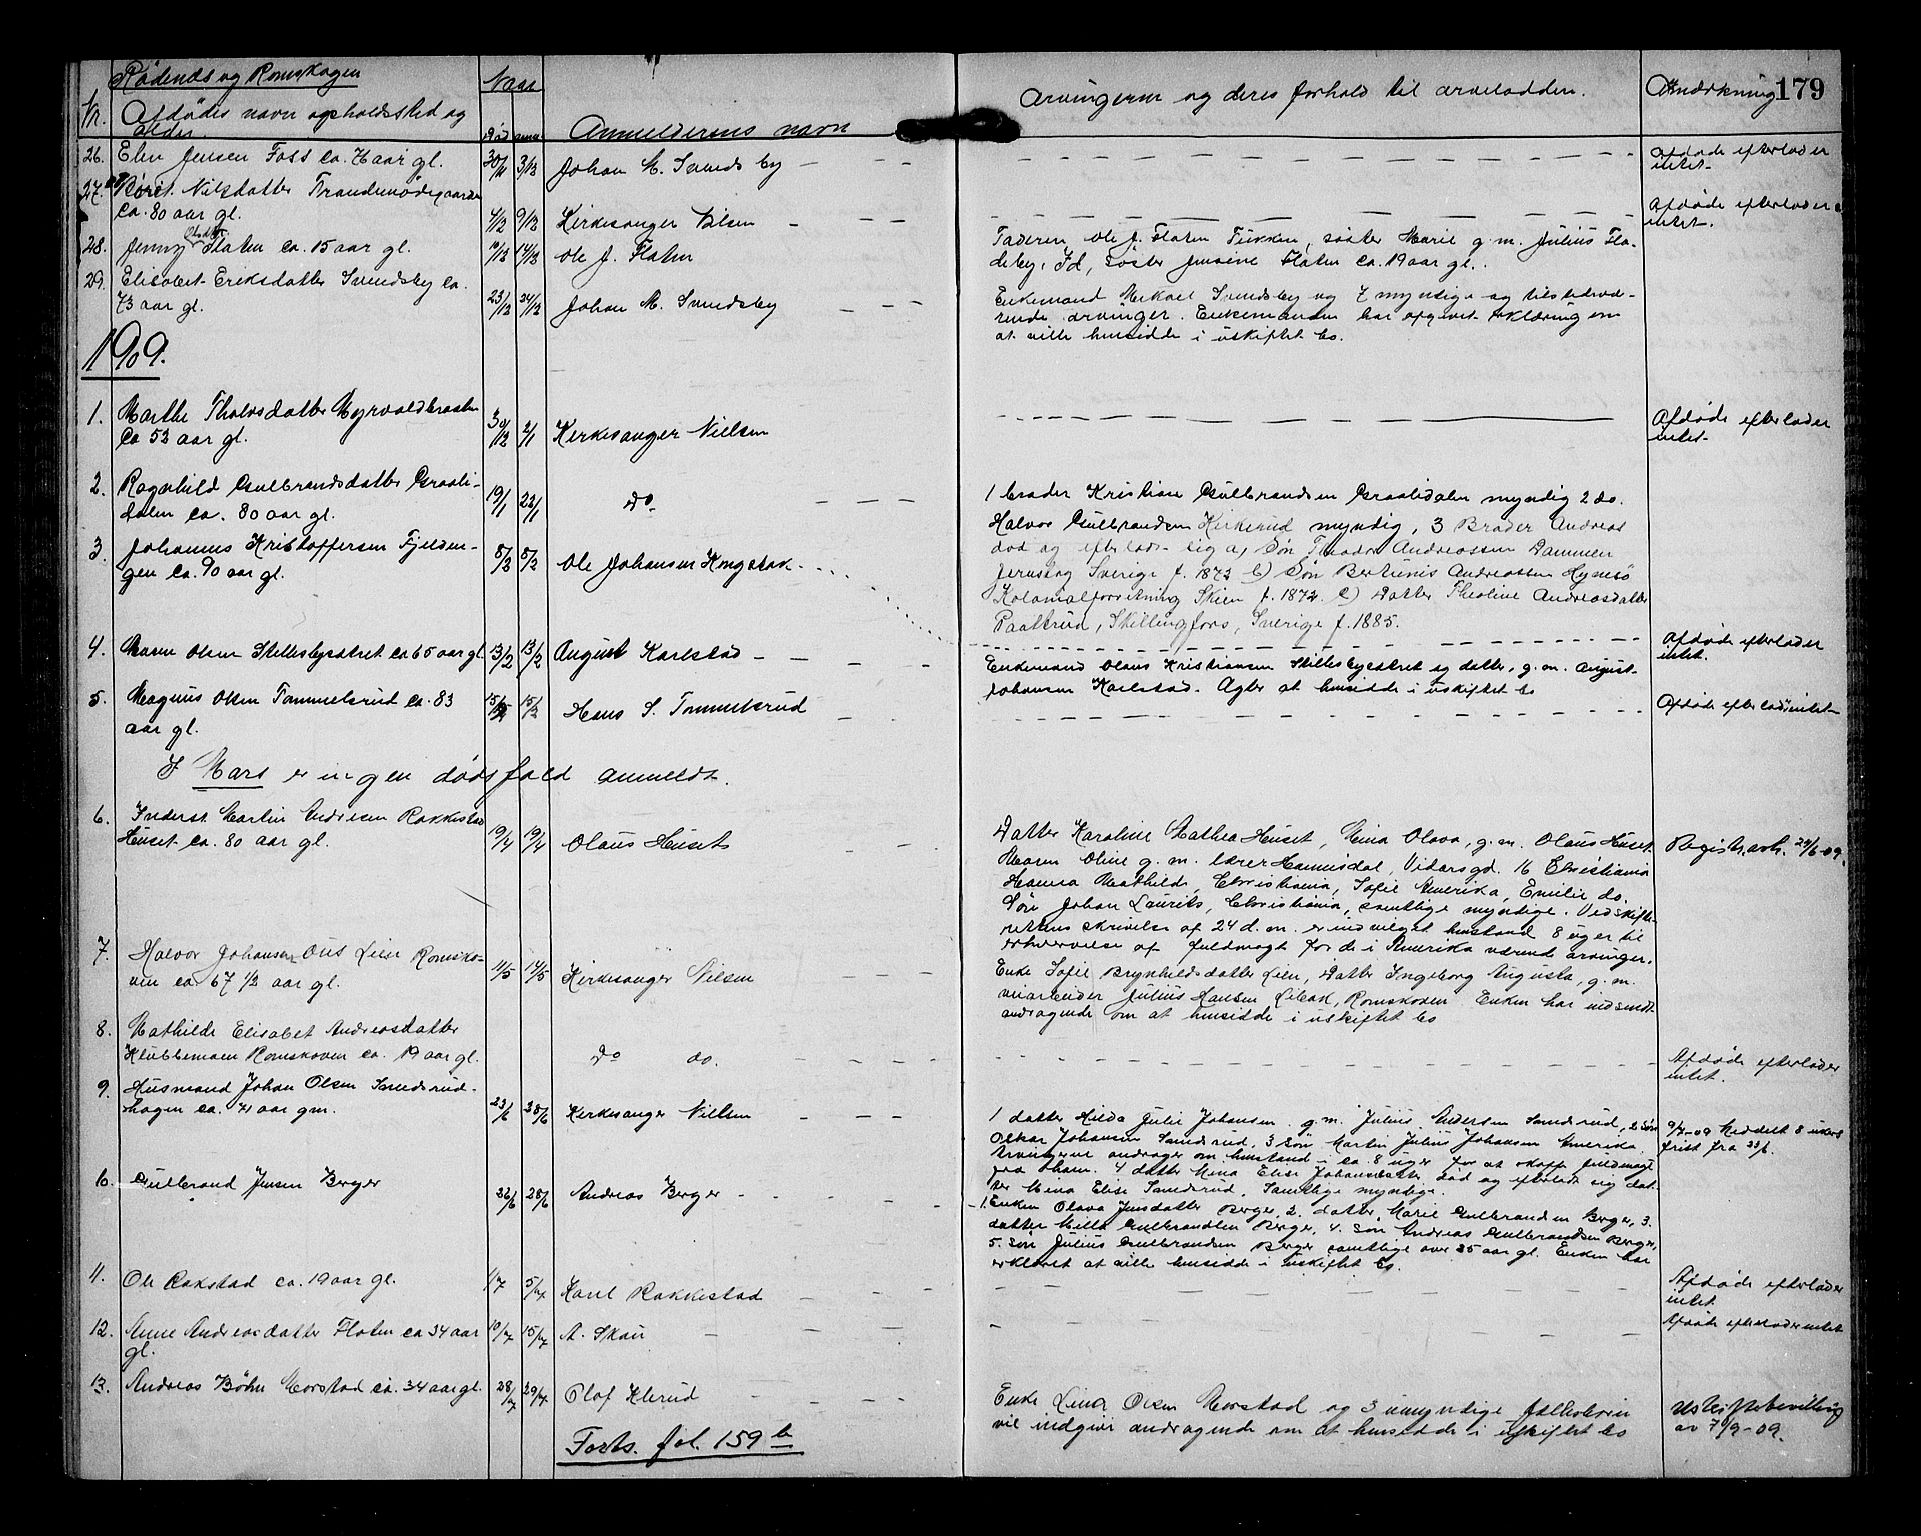 Rødenæs og Romskogen
Naar
Arvingerne og deres forhold til arveladden.
Anmærkning 179
Nr. Afdødes navn opholdssted og
alder
død anm.
Anmelderens navn
26. Elen Jensen Foss ca. 76 aar gl. 30/11 3/12 Johan M. Svendsby
Afdøde efterlader
intet.
27. Børit Nilsdatter Trandemødegaarden
ca. 80 aar gl. 4/12 9/12 Kirkesanger Nilsen
Afdøde efterlader
intet.
28. Jenny Olsdtr. Flaten ca. 15 aar gl. 10/12 14/12 Ole J. Flaten
Faderen Ole J. Flaten Tukken, søster Marie g.m. Julius Fla-
deby, Id, søster Jensine Flaten ca. 19 aar gl.
29. Elisabet Eriksdatter Svendsby ca.
73 aar gl. 23/12 24/12 Johan M. Svendsby
Enkemand Mikael Svendsby og 7 myndige og tilstedevæ-
rende arvinger. Enkemanden har afgivet erklæring om
at ville hensidde i uskiftet bo.
1909.
1. Marthe Tholvsdatter Myrvoldbraaten
Ca 53 aar gl. 30/12 2/1 Kirkesanger Nielsen
Afdøde efterlader
intet.
2. Ragnhild Gulbrandsdatter Graali-
dalen ca. 80 aar gl. 19/1 22/1 Do.
1 broder Kristian Gulbrandsen Graalidalen myndig 2 do.
Halvor Gulbrandsen Kirkerud myndig, 3 Broder Andreas
død og efterladt sig a) Søn Theodor Andreassen Dammen
Jernskog Sverige f. 1873 b) Søn Bertinis Andreassen Hymsø
Kolonialforretning Skien f. 1872. c) Datter Theoline Andreasdatter
Paatrud, Skillingfors, Sverige f. 1885.
3. Johannes Kristoffersen Fjelden-
gen ca. 90 aar gl. 5/2 5/2 Ole Johansen Kongstok
Afdøde efterlader
intet.
4. Maren Olsen Skillebyeatret ca 65 aar gl. 13/2 13/2 August Karlstad
Enkemand Olaus Kristiansen Skillebyeatret og datter, g.m. August
Johansen Karlstad. Agter at hensidde i uskiftet bo
5. Magnus Olsen Tommelsrud ca. 83
aar gl. 15/2 15/2 Hans S. Tommelsrud
Afdøde efterlader intet
I Mars er ingen dødsfald anmeldt.
6. Inderst Martin Andresen Rakkestad
Huset ca. 80 aar gl. 19/4 19/4 Olaus Huset
Datter Karoline Mathea Huset, Mina Olava, g.m. Olaus Huset
Maren Oline g.m. lærer Hannisdal, Vidarsgd. 16 Christiania
Hanna Mathilde, Christiania, Sofie Amerika, Emilie do.
Søn Johan Laurits, Christiania, samtlige myndige. Ved skifte-
rettens skrivelse af 24 d.m. er indvilget henstand 8 uger til
erhvervelse af fuldmagt for de i Amerika værende arvinger.
Regist.avh. 24/6-09.
7. Halvor Johansen Ous Lien Romsko-
ven ca 67 1/2 aar gl. 11/5 14/5 Kirkesanger Nilsen
Enke Sofie Brynhildsdatter Lien, Datter Ingeborg Augusta, g.m.
veiarbeider Julius Hansen Libak, Romskoven. Enken har indsendt
andragende om at hensidde i uskiftet bo
8. Mathilde Elisabet Andreasdatter
Klubbemoen Romskoven ca. 19 aar gl. Do do.
Afdøde efterlader
intet.
9. Husmand Johan Olsen Smedsrud-
hagen ca. 71 aar gm. 23/6 25/6 Kirkesanger Nielsen
1 datter Hilda Julie Johansen g.m. Julius Andersen Smedsrud, 2 Søn
Oskar Johansen Smedsrud, 3 Søn Martin Julius Johansen Amerika.
Arvingerne andrager om henstand i ca. 8 uger for at skaffe fuldmagt
fra ham. 4 datter Mina Elise Johansdatter død og efterladt sig dat-
ter Mina Elise Smedsrud. Samtlige myndige.
9/7-09 Meddelt 8 ukers
frist fra 23/6.
10. Gulbrand Jensen Berger 26/6 28/6 Andreas Berger
1. Enken Olava Jensdatter Berger, 2. datter Marie Gulbrandsen Berger, 3.
datter Milla Gulbrandsen Berger, 4. Søn Andreas Gulbrandsen Berger,
5. Søn Julius Gulbrandsen Berger samtlige over 25 aar gl. Enken har
erklæret at ville hensidde i uskiftet bo.
11. Ole Rakstad ca. 19 aar gl. 1/7 5/7 Karel Rakkestad
Afdøde efterlader
intet.
12. Anne Andreasdatter Flaten ca 34 aar
gl. 10/7 15/7 A. Skau
Afdøde efterlader intet
13. Andreas Bøhn Morstad ca. 34 aar gl. 28/7 29/7 Olaf Klerud
Enke Lina Olsen Morstad og 3 umyndige fællesbørn
vil indgive andragende om at hensidde i uskiftet bo
Uskiftebevilling
av 7/9-09.
Forts. fol. 159 b